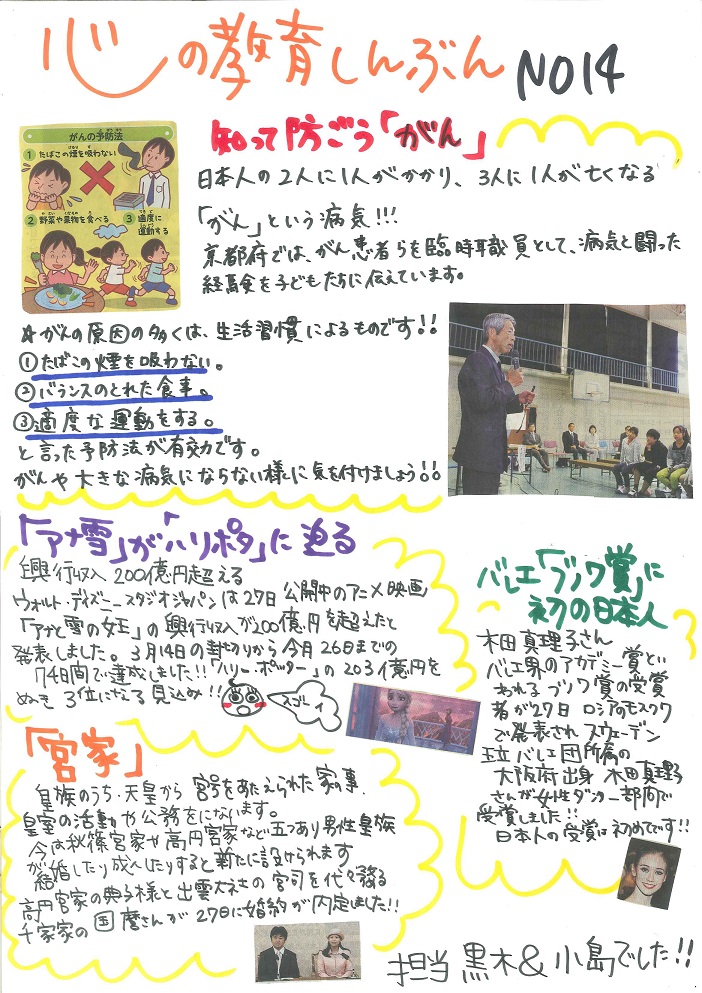 心の教育しんぶん NO14
がんの予防法
1 たばこの煙を吸わない
2 野菜や果物を食べる
3 適度に
運動する
知って防ごう「がん」
日本人の2人に1人がかかり、3人に1人が亡くなる
「がん」という病気!!!
京都府では、がん患者らを臨時職員として、病気と闘った
経験を子どもたちに伝えています。
☆がんの原因の多くは、生活習慣によるものです!!
①たばこの煙を吸わない。
②バランスのとれた食事。
③適度な運動をする。
と言った予防法が有効です。
がんや大きな病気にならない様に気を付けましょう!!
「アナ雪」が「ハリポタ」に迫る
興行収入200億円超える
ウォルト・ディズニースタジオジャパンは27日公開中のアニメ映画
「アナと雪の女王」の興行収入が200億円を超えたと
発表しました。3月14日の封切りから今月26日までの
74日間で達成しました!!「ハリーポッター」の203億円を
ぬき3位になる見込み!!
スゴーイ
バレエ「ブノワ賞」に
初の日本人
木田真理子さん
バレエ界のアカデミー賞とい
われるブノワ賞の受賞
者が27日ロシアのモスクワ
で発表されスウェーデン
王立バレエ団所属の
大阪府出身木田真理子
さんが女性ダンサー部門で
受賞しました!!
日本人の受賞は初めてです!!
「宮家」
皇族のうち、天皇から宮号をあたえられた家の事。
皇室の活動や公務をにないます。
今は秋篠宮家や高円宮家など五つあり男性皇族
が結婚したり成人したりすると新たに設けられます
高円宮家の典子様と出雲大社の宮司を代々務る
千家家の国麿さんが27日に婚約が内定しました!!
担当 黒木&小島でした!!